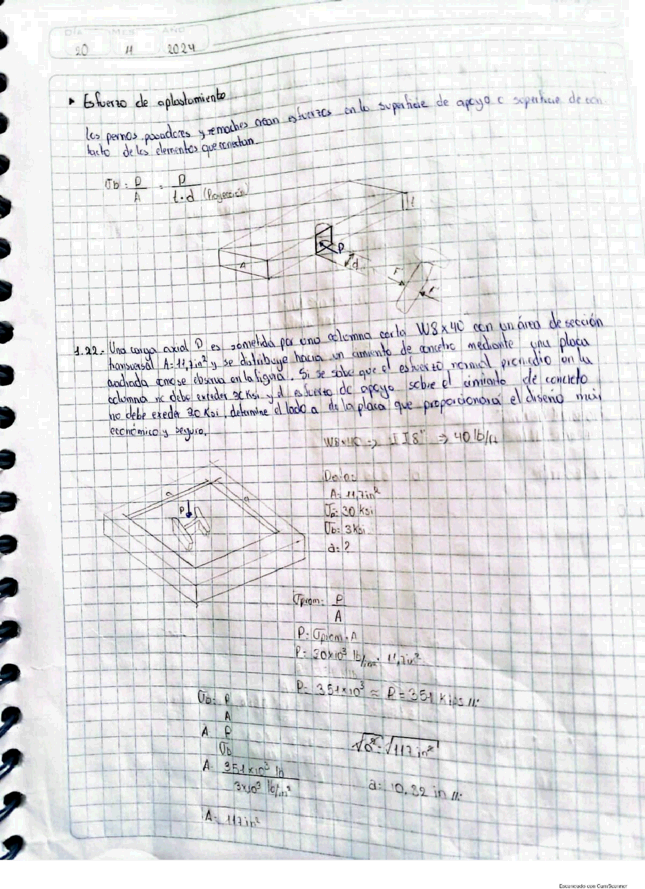 DIA MES AÑO
20 11 2024
▸ Esfuerzo de aplastamiento
Los pernos, pasadores y remaches crean esfuerzos en la superficie de apoyo o superficie de con
tacto de los elementos que conectan.
σb = P/A = P/t·d (Proyección)
t
A
P
d
F
F
1.22.- Una carga axial P es sometida por una columna corta W8x40 con un área de sección
transversal A = 11,7 in² y se distribuye hacia un cimiento de concreto mediante una placa
cuadrada como se observa en la figura. Si se sabe que el esfuerzo normal promedio en la
columna no debe exceder 30 Ksi y el esfuerzo de apoyo sobre el cimiento de concreto
no debe exeder 3.0 Ksi, determine el lado a de la placa que proporcionará el diseño más
económico y seguro.
W8x40 => I I 8" => 40 lb/ft
Datos:
A = 11,7 in²
σp = 30 ksi
σb = 3 ksi
a = ?
a
a
P
σprom = P/A
P = σprom · A
P = 30x10³ lb/in² · 11,7 in²
P = 351x10³ ≈ P = 351 Kips //
σb = P/A
A = P/σb
A = 351x10³ lb / 3x10³ lb/in²
A = 117 in²
√a² = √117 in²
a = 10,82 in //
Escaneado con CamScanner